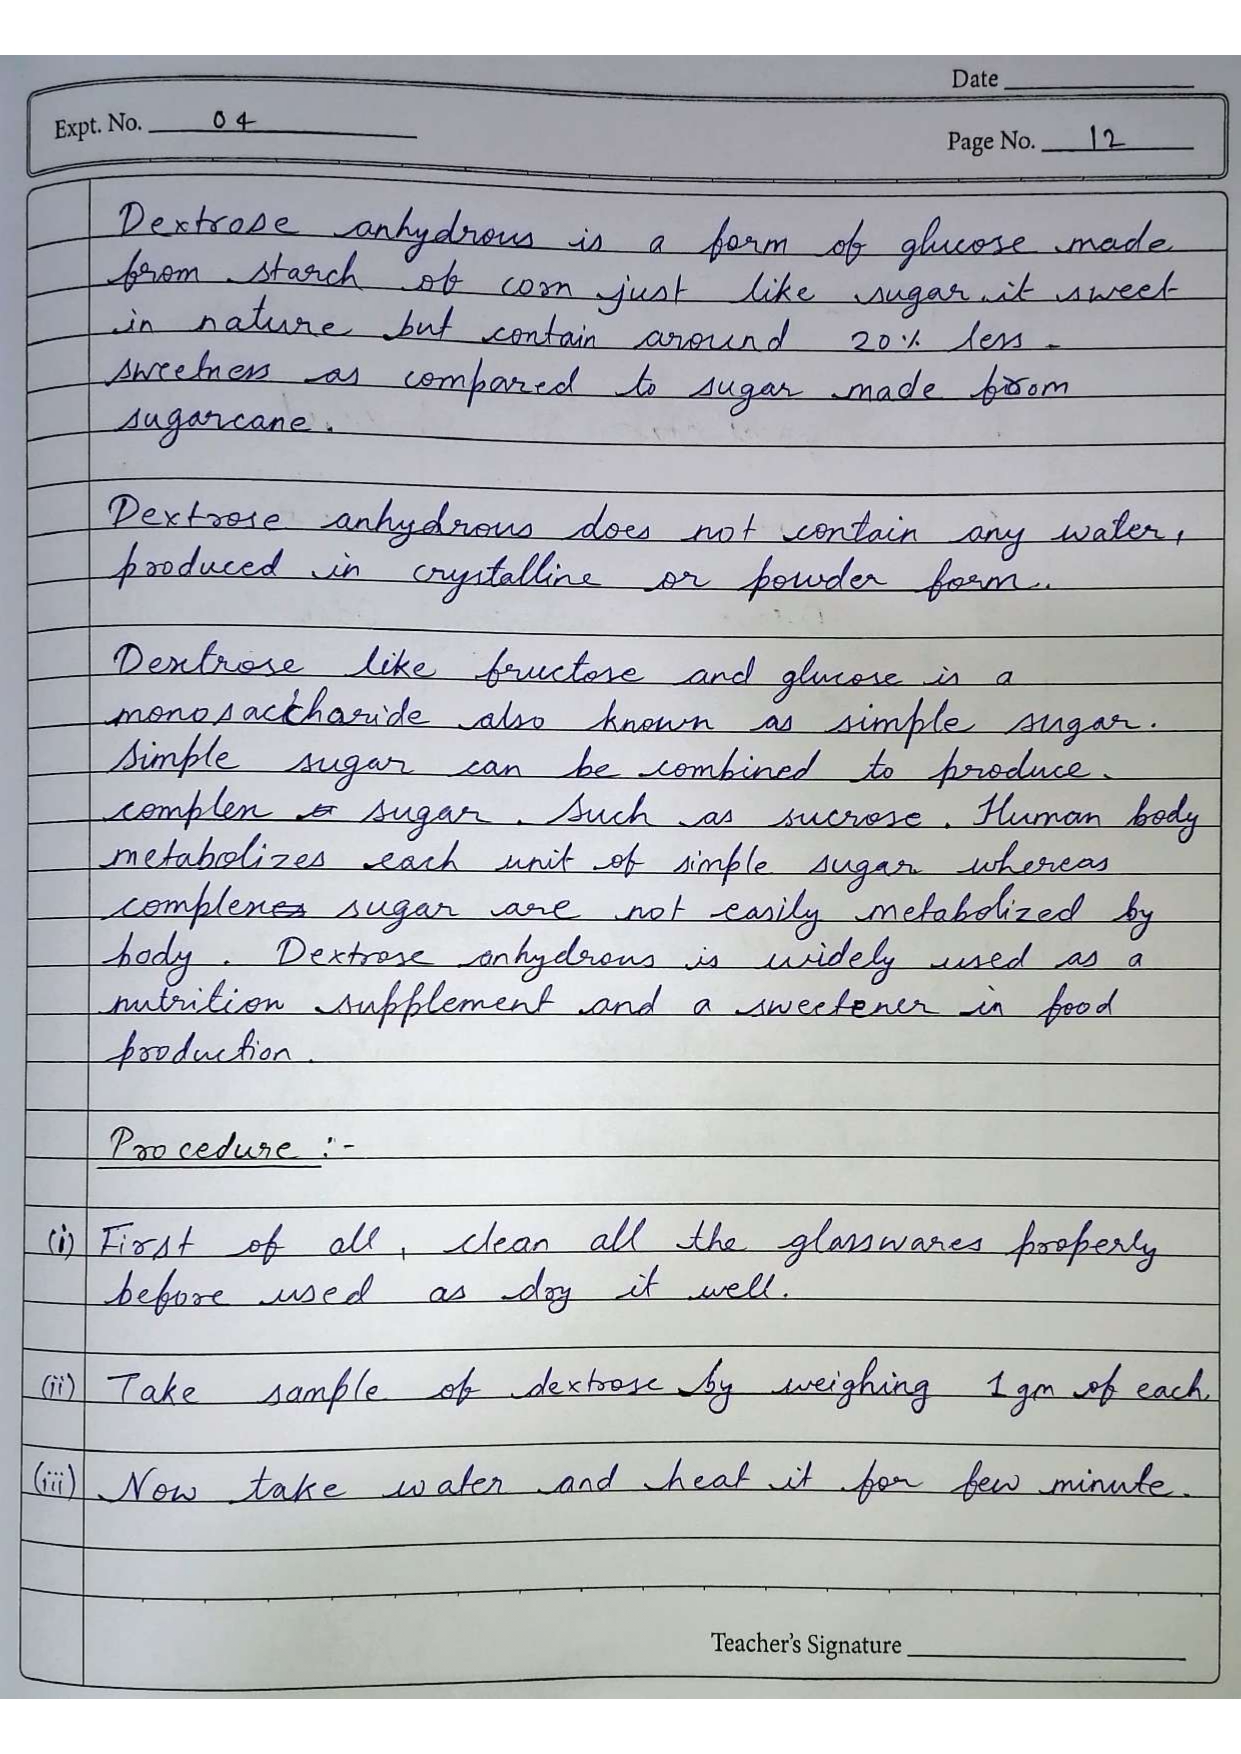 Date
Expt. No. 04
Page No. 12
Dextrose anhydrous is a form of glucose made
from starch of corn just like sugar it sweet
in nature but contain around 20% less
sweetness as compared to sugar made from
sugarcane.
Dextrose anhydrous does not contain any water,
produced in crystalline or powder form.
Dextrose like fructose and glucose is a
monosaccharide also known as simple sugar.
Simple sugar can be combined to produce
complex sugar. Such as sucrose. Human body
metabolizes each unit of simple sugar whereas
complexes sugar are not easily metabolized by
body. Dextrose anhydrous is widely used as a
nutrition supplement and a sweetener in food
production.
Procedure :-
(i) First of all, clean all the glasswares properly
before used as dry it well.
(ii) Take sample of dextrose by weighing 1 gm of each.
(iii) Now take water and heat it for few minute.
Teacher's Signature